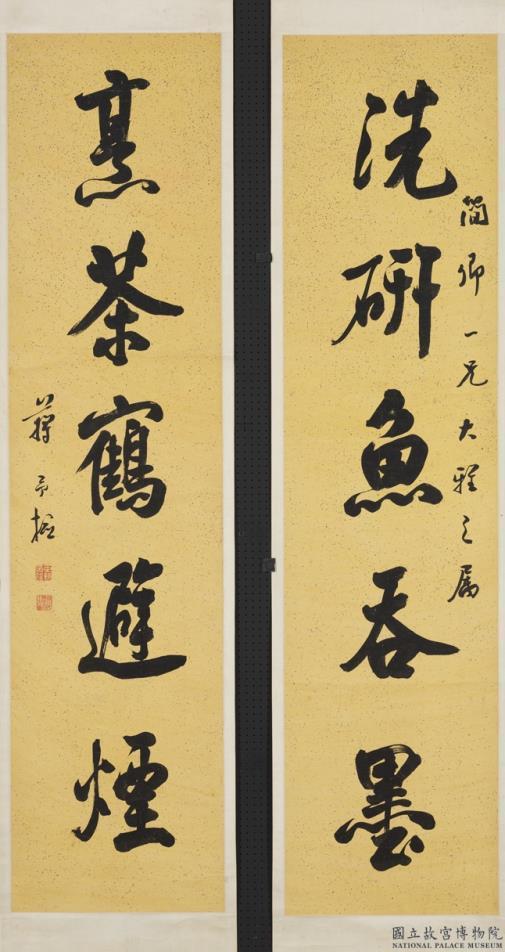 洗研魚吞墨
簡卿一兄大雅之属
烹茶鶴避煙
蔣予檢
國立故宮博物院
NATIONAL PALACE MUSEUM